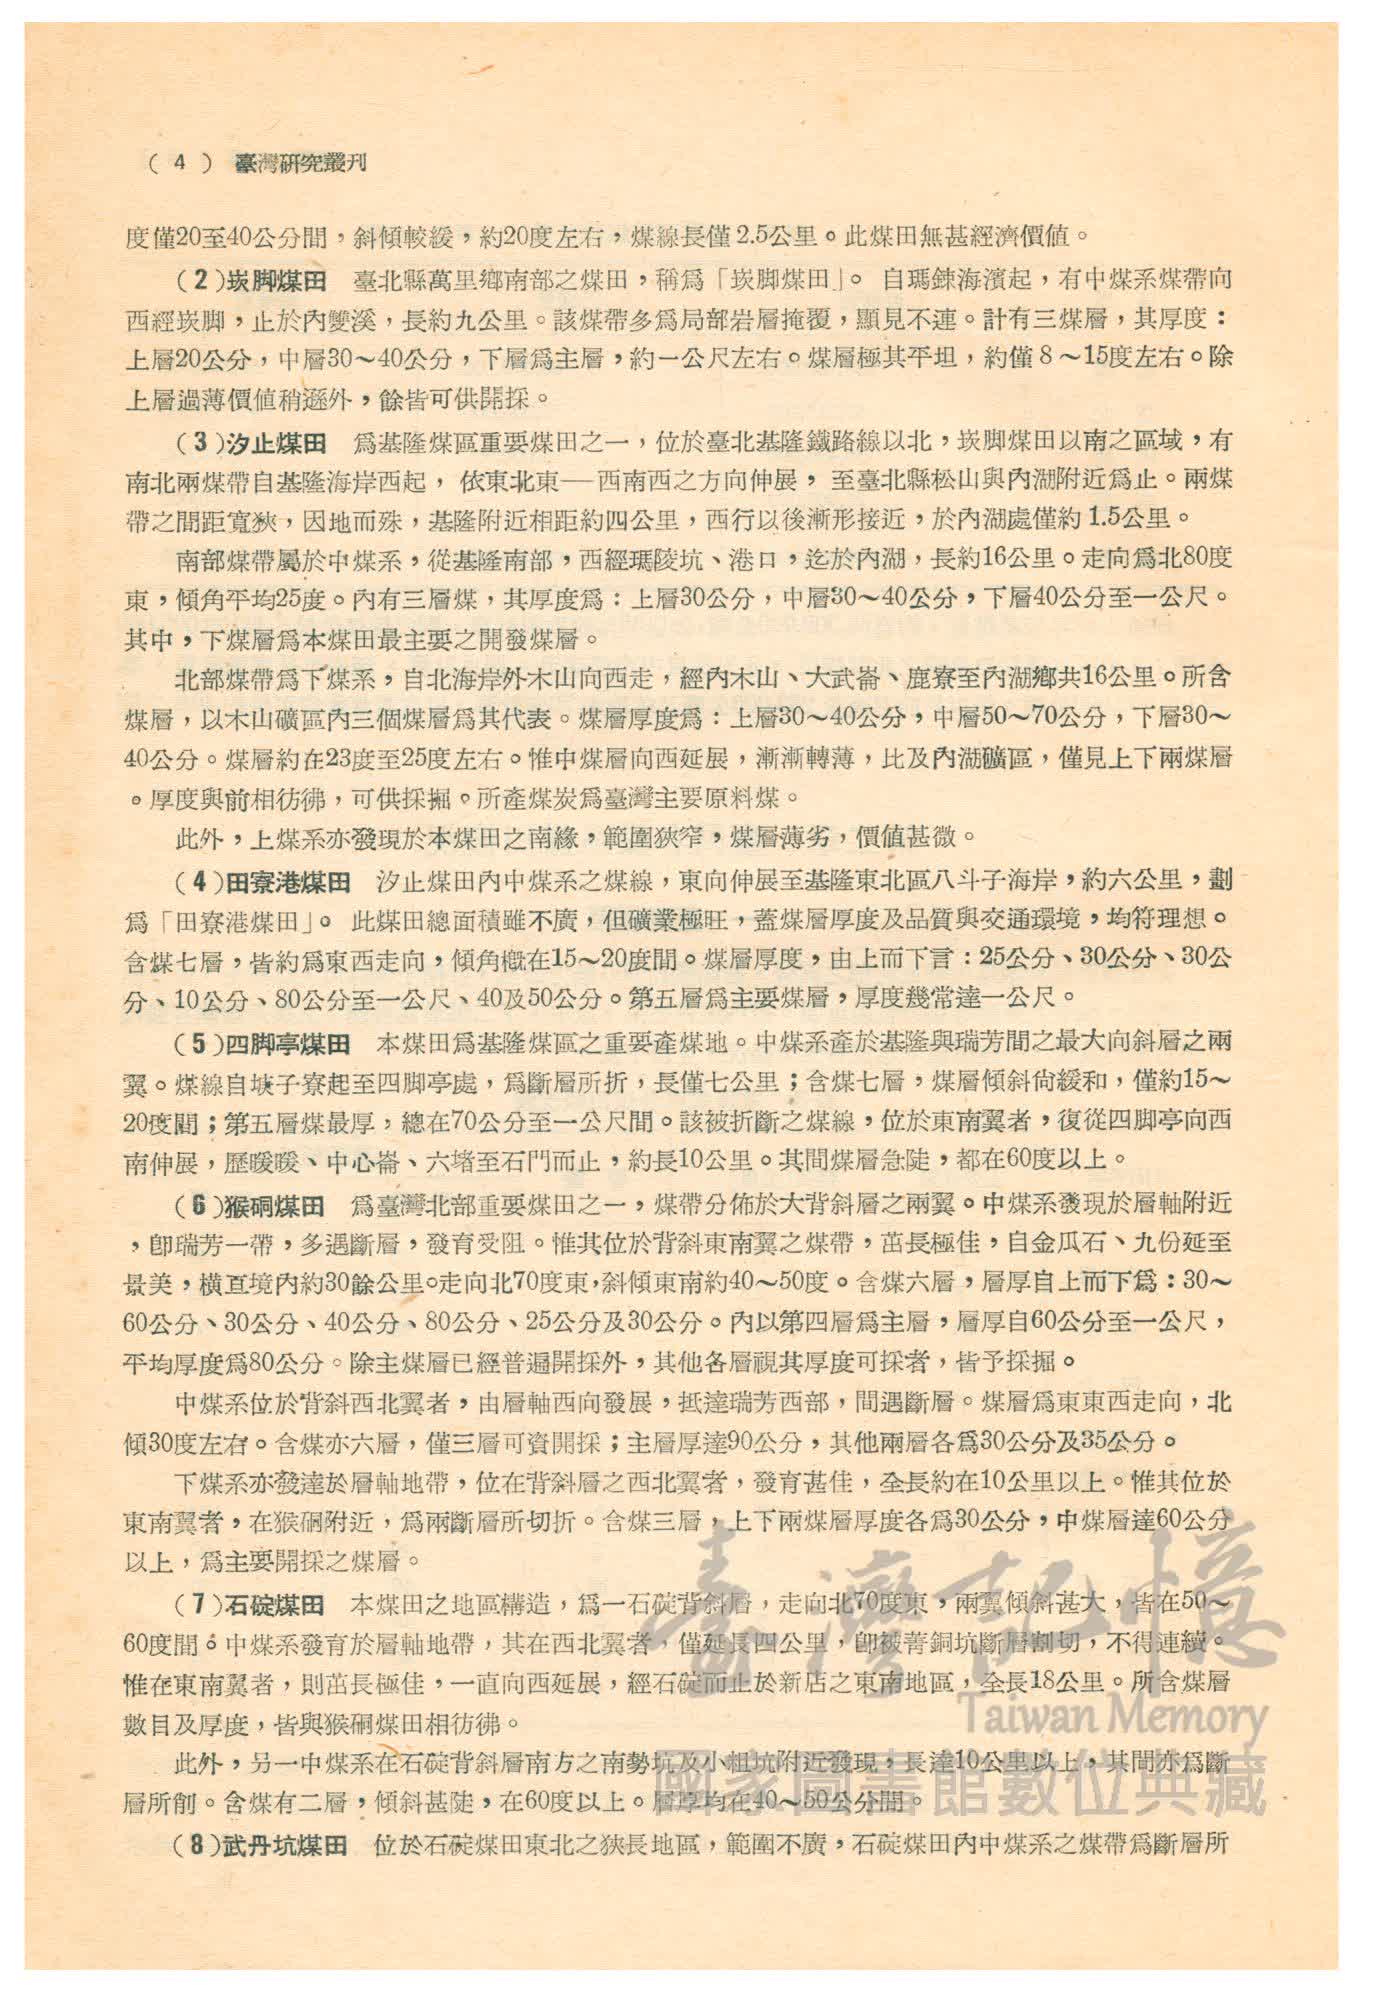 ( 4 ) 臺灣研究叢刊
度僅20至40公分間，斜傾較緩，約20度左右，煤線長僅2.5公里。此煤田無甚經濟價值。
(2)崁脚煤田　臺北縣萬里鄉南部之煤田，稱爲「崁脚煤田」。自瑪鋉海濱起，有中煤系煤帶向
西經崁脚，止於內雙溪，長約九公里。該煤帶多爲局部岩層掩覆，顯見不連。計有三煤層，其厚度：
上層20公分，中層30～40公分，下層爲主層，約一公尺左右。煤層極其平坦，約僅8～15度左右。除
上層過薄價值稍遜外，餘皆可供開採。
(3)汐止煤田　爲基隆煤區重要煤田之一，位於臺北基隆鐵路線以北，崁脚煤田以南之區域，有
南北兩煤帶自基隆海岸西起，依東北東—西南西之方向伸展，至臺北縣松山與內湖附近爲止。兩煤
帶之間距寬狹，因地而殊，基隆附近相距約四公里，西行以後漸形接近，於內湖處僅約1.5公里。
南部煤帶屬於中煤系，從基隆南部，西經瑪陵坑、港口，迄於內湖，長約16公里。走向爲北80度
東，傾角平均25度。內有三層煤，其厚度爲：上層30公分，中層30～40公分，下層40公分至一公尺。
其中，下煤層爲本煤田最主要之開發煤層。
北部煤帶爲下煤系，自北海岸外木山向西走，經內木山、大武崙、鹿寮至內湖鄉共16公里。所含
煤層，以木山礦區內三個煤層爲其代表。煤層厚度爲：上層30～40公分，中層50～70公分，下層30～
40公分。煤層約在23度至25度左右。惟中煤層向西延展，漸漸轉薄，比及內湖礦區，僅見上下兩煤層
。厚度與前相彷彿，可供採掘。所產煤炭爲臺灣主要原料煤。
此外，上煤系亦發現於本煤田之南緣，範圍狹窄，煤層薄劣，價值甚微。
(4)田寮港煤田　汐止煤田內中煤系之煤線，東向伸展至基隆東北區八斗子海岸，約六公里，劃
爲「田寮港煤田」。此煤田總面積雖不廣，但礦業極旺，蓋煤層厚度及品質與交通環境，均符理想。
含煤七層，皆約爲東西走向，傾角概在15～20度間。煤層厚度，由上而下言：25公分、30公分、30公
分、10公分、80公分至一公尺、40及50公分。第五層爲主要煤層，厚度幾常達一公尺。
(5)四脚亭煤田　本煤田爲基隆煤區之重要產煤地。中煤系產於基隆與瑞芳間之最大向斜層之兩
翼。煤線自㙍子寮起至四脚亭處，爲斷層所折，長僅七公里；含煤七層，煤層傾斜尙緩和，僅約15～
20度間；第五層煤最厚，總在70公分至一公尺間。該被折斷之煤線，位於東南翼者，復從四脚亭向西
南伸展，歷暖暖、中心崙、六堵至石門而止，約長10公里。其間煤層急陡，都在60度以上。
(6)猴硐煤田　爲臺灣北部重要煤田之一，煤帶分佈於大背斜層之兩翼。中煤系發現於層軸附近
，卽瑞芳一帶，多遇斷層，發育受阻。惟其位於背斜東南翼之煤帶，茁長極佳，自金瓜石、九份延至
景美，橫亙境內約30餘公里。走向北70度東，斜傾東南約40～50度。含煤六層，層厚自上而下爲：30～
60公分、30公分、40公分、80公分、25公分及30公分。內以第四層爲主層，層厚自60公分至一公尺，
平均厚度爲80公分。除主煤層已經普遍開採外，其他各層視其厚度可採者，皆予採掘。
中煤系位於背斜西北翼者，由層軸西向發展，抵達瑞芳西部，間遇斷層。煤層爲東東西走向，北
傾30度左右。含煤亦六層，僅三層可資開採；主層厚達90公分，其他兩層各爲30公分及35公分。
下煤系亦發達於層軸地帶，位在背斜層之西北翼者，發育甚佳，全長約在10公里以上。惟其位於
東南翼者，在猴硐附近，爲兩斷層所切折。含煤三層，上下兩煤層厚度各爲30公分，中煤層達60公分
以上，爲主要開採之煤層。
(7)石碇煤田　本煤田之地區構造，爲一石碇背斜層，走向北70度東，兩翼傾斜甚大，皆在50～
60度間。中煤系發育於層軸地帶，其在西北翼者，僅延長四公里，卽被菁銅坑斷層割切，不得連續。
惟在東南翼者，則茁長極佳，一直向西延展，經石碇而止於新店之東南地區，全長18公里。所含煤層
數目及厚度，皆與猴硐煤田相彷彿。
此外，另一中煤系在石碇背斜層南方之南勢坑及小粗坑附近發現，長達10公里以上，其間亦爲斷
層所削。含煤有二層，傾斜甚陡，在60度以上。層厚均在40～50公分間。
(8)武丹坑煤田　位於石碇煤田東北之狹長地區，範圍不廣，石碇煤田內中煤系之煤帶爲斷層所
臺灣記憶
Taiwan Memory
國家圖書館數位典藏